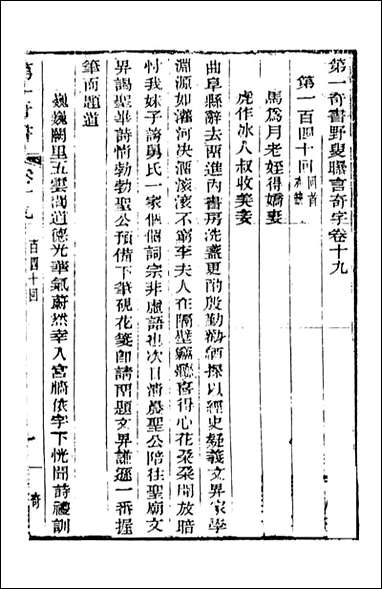 第一奇書野叟曝言奇字卷十九
第一百四十回
馬爲月老姪得嬌妻
虎作冰人叔收美妾
曲阜縣辭去兩進內書房洗盞更酌殷勤勸酒探以經史疑義文昇家學
淵源如瀟河决酒滚滚不窮李夫人在隔壁竊聽喜得心花朶朶開放暗
忖我妹子誇舅氏一家個個詞宗非虛語也次日淸晨聖公陪往聖廟文
昇謁聖畢詩情勃勃聖公預備下筆硯花箋卽請留題文昇謙遜一番握
筆而題道
巍巍闕里五雲間道德光華氣蔚然幸入宮牆依字下恍聞詩禮訓
第一奇書
卷十九
百四十回
奇